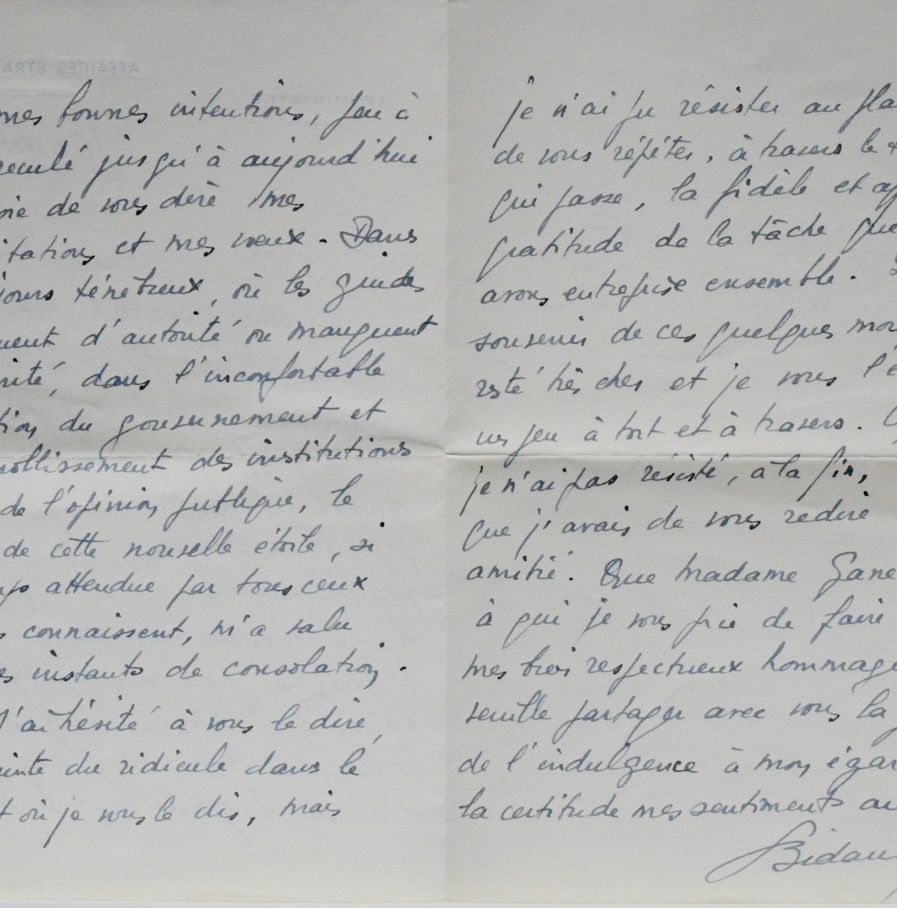 AFFAIRES ÉTRA
mes bonnes intentions, j'en a
reculé jusqu'à aujourd'hui
oie de vous dire mes
itations et mes vœux. Dans
jours ténébreux, où les guides
quent d'autorité ou manquent
rité, dans l'inconfortable
tion du gouvernement et
mollissement des institutions
de l'opinion publique, le
de cette nouvelle étoile, si
mps attendue par tous ceux
s connaissent, m'a valu
es instants de consolation.
J'ai hésité à vous le dire,
inte du ridicule dans le
t où je vous le dis, mais
je n'ai pu résister au pla
de vous répéter, à travers le t
qui passe, la fidèle et af
gratitude de la tâche que
avons entreprise ensemble.
souvenir de ces quelques mo
resté très cher et je vous l'é
un peu à tort et à travers.
je n'ai pas résisté, à la fin,
que j'avais de vous redire
amitié. Que Madame Gane
à qui je vous prie de faire
mes bien respectueux hommage
veuille partager avec vous la
de l'indulgence à mon égar
la certitude mes sentiments
Bidau